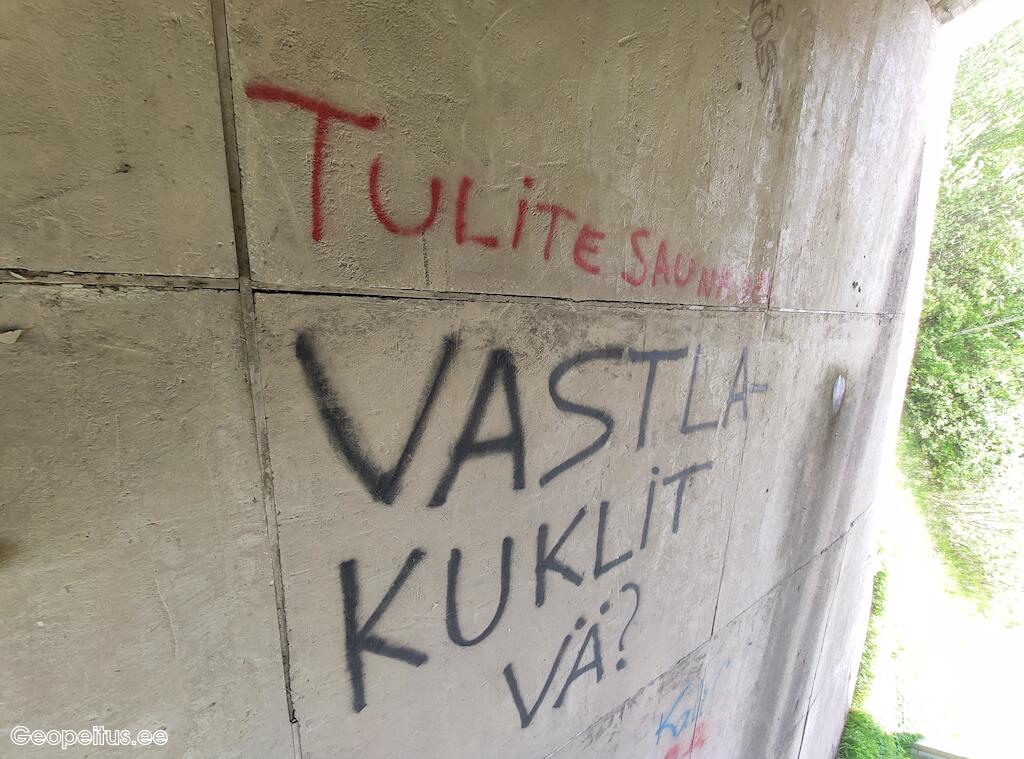 TULITE SAUNA
VASTLA-
KUKLIT
VÄ?
Geopeitus.ee